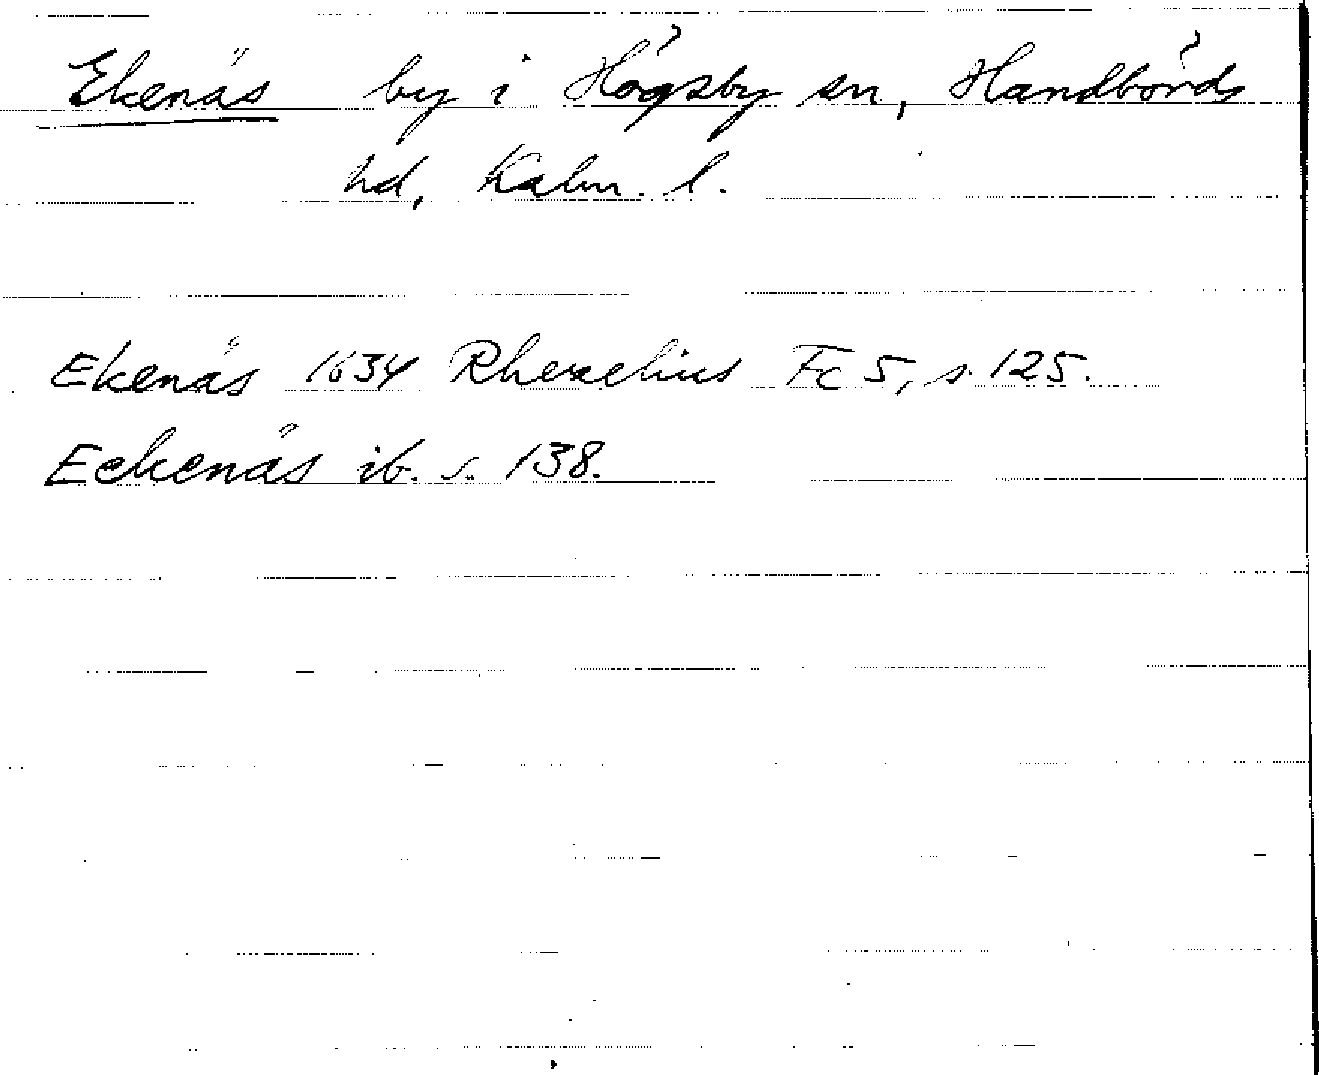 Ekenäs by i Högsby sn, Handbörds
hd, Kalm. l.
Ekenäs 1634 Rhezelius Fc 5, s. 125.
Eckenäs ib. s. 138.